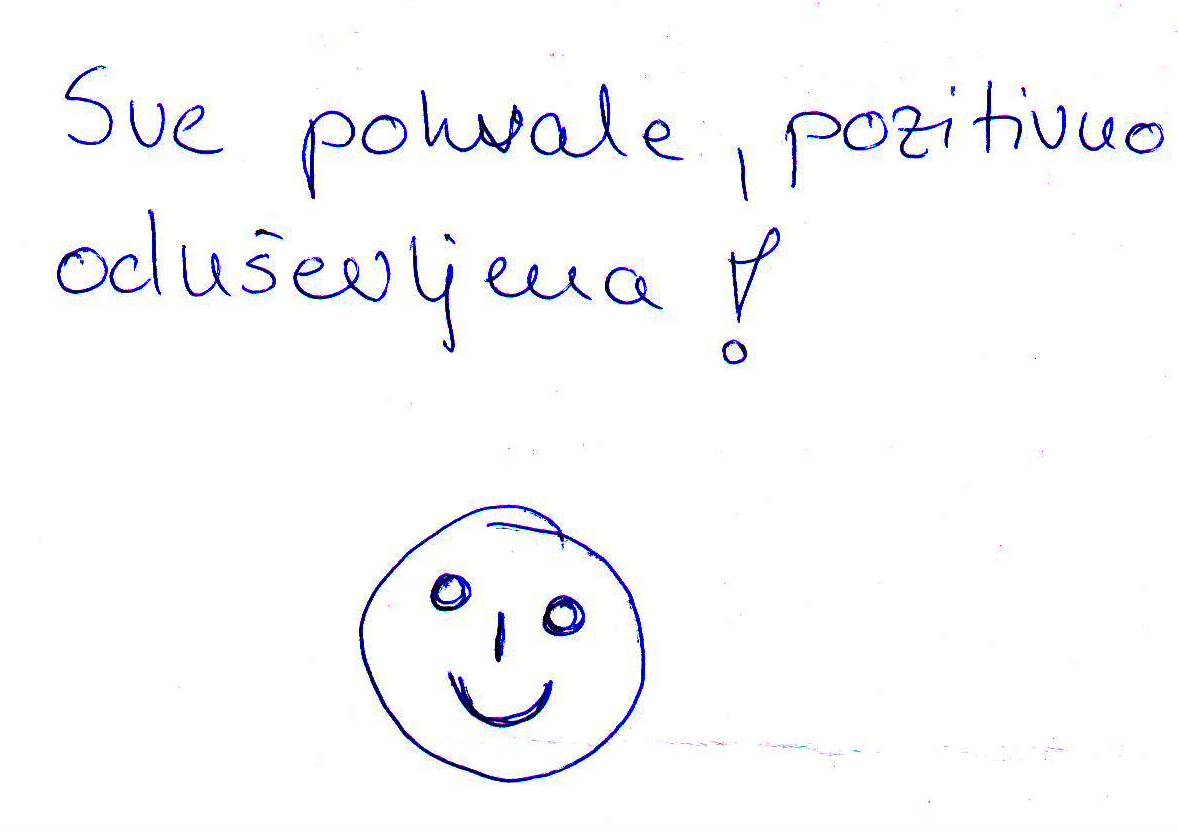 Sve pohvale, pozitivno
oduševljena!